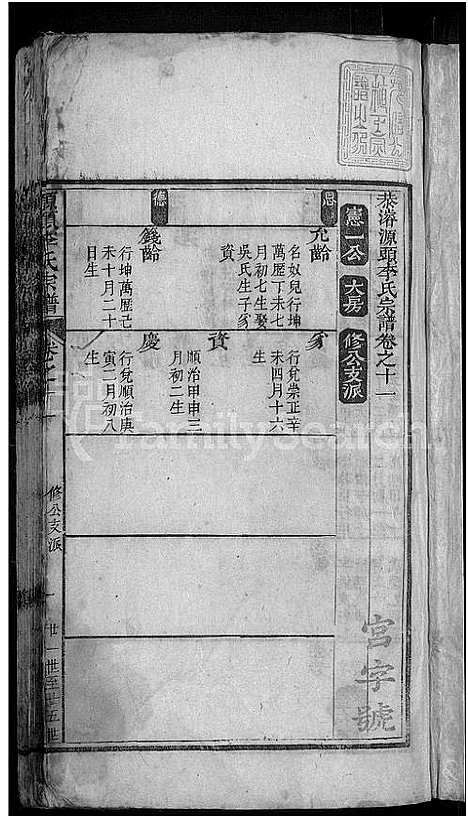 棻溶源頭李氏宗譜卷之十一
宮字號
憲一公 大房 修公支派
思
德
允齡
名奴兒行坤
萬歷丁未七
月初七生娶
吳氏生子㒸
資
錢齡
行坤萬歷七
未十月二十
日生
㒸
行兌崇正辛
未四月十六
生
資
順治甲申三
月初二生
慶
行兌順治庚
寅二月初八
生
李氏宗譜
卷之十一
修公支派
廿一世至廿五世
FamilySearch